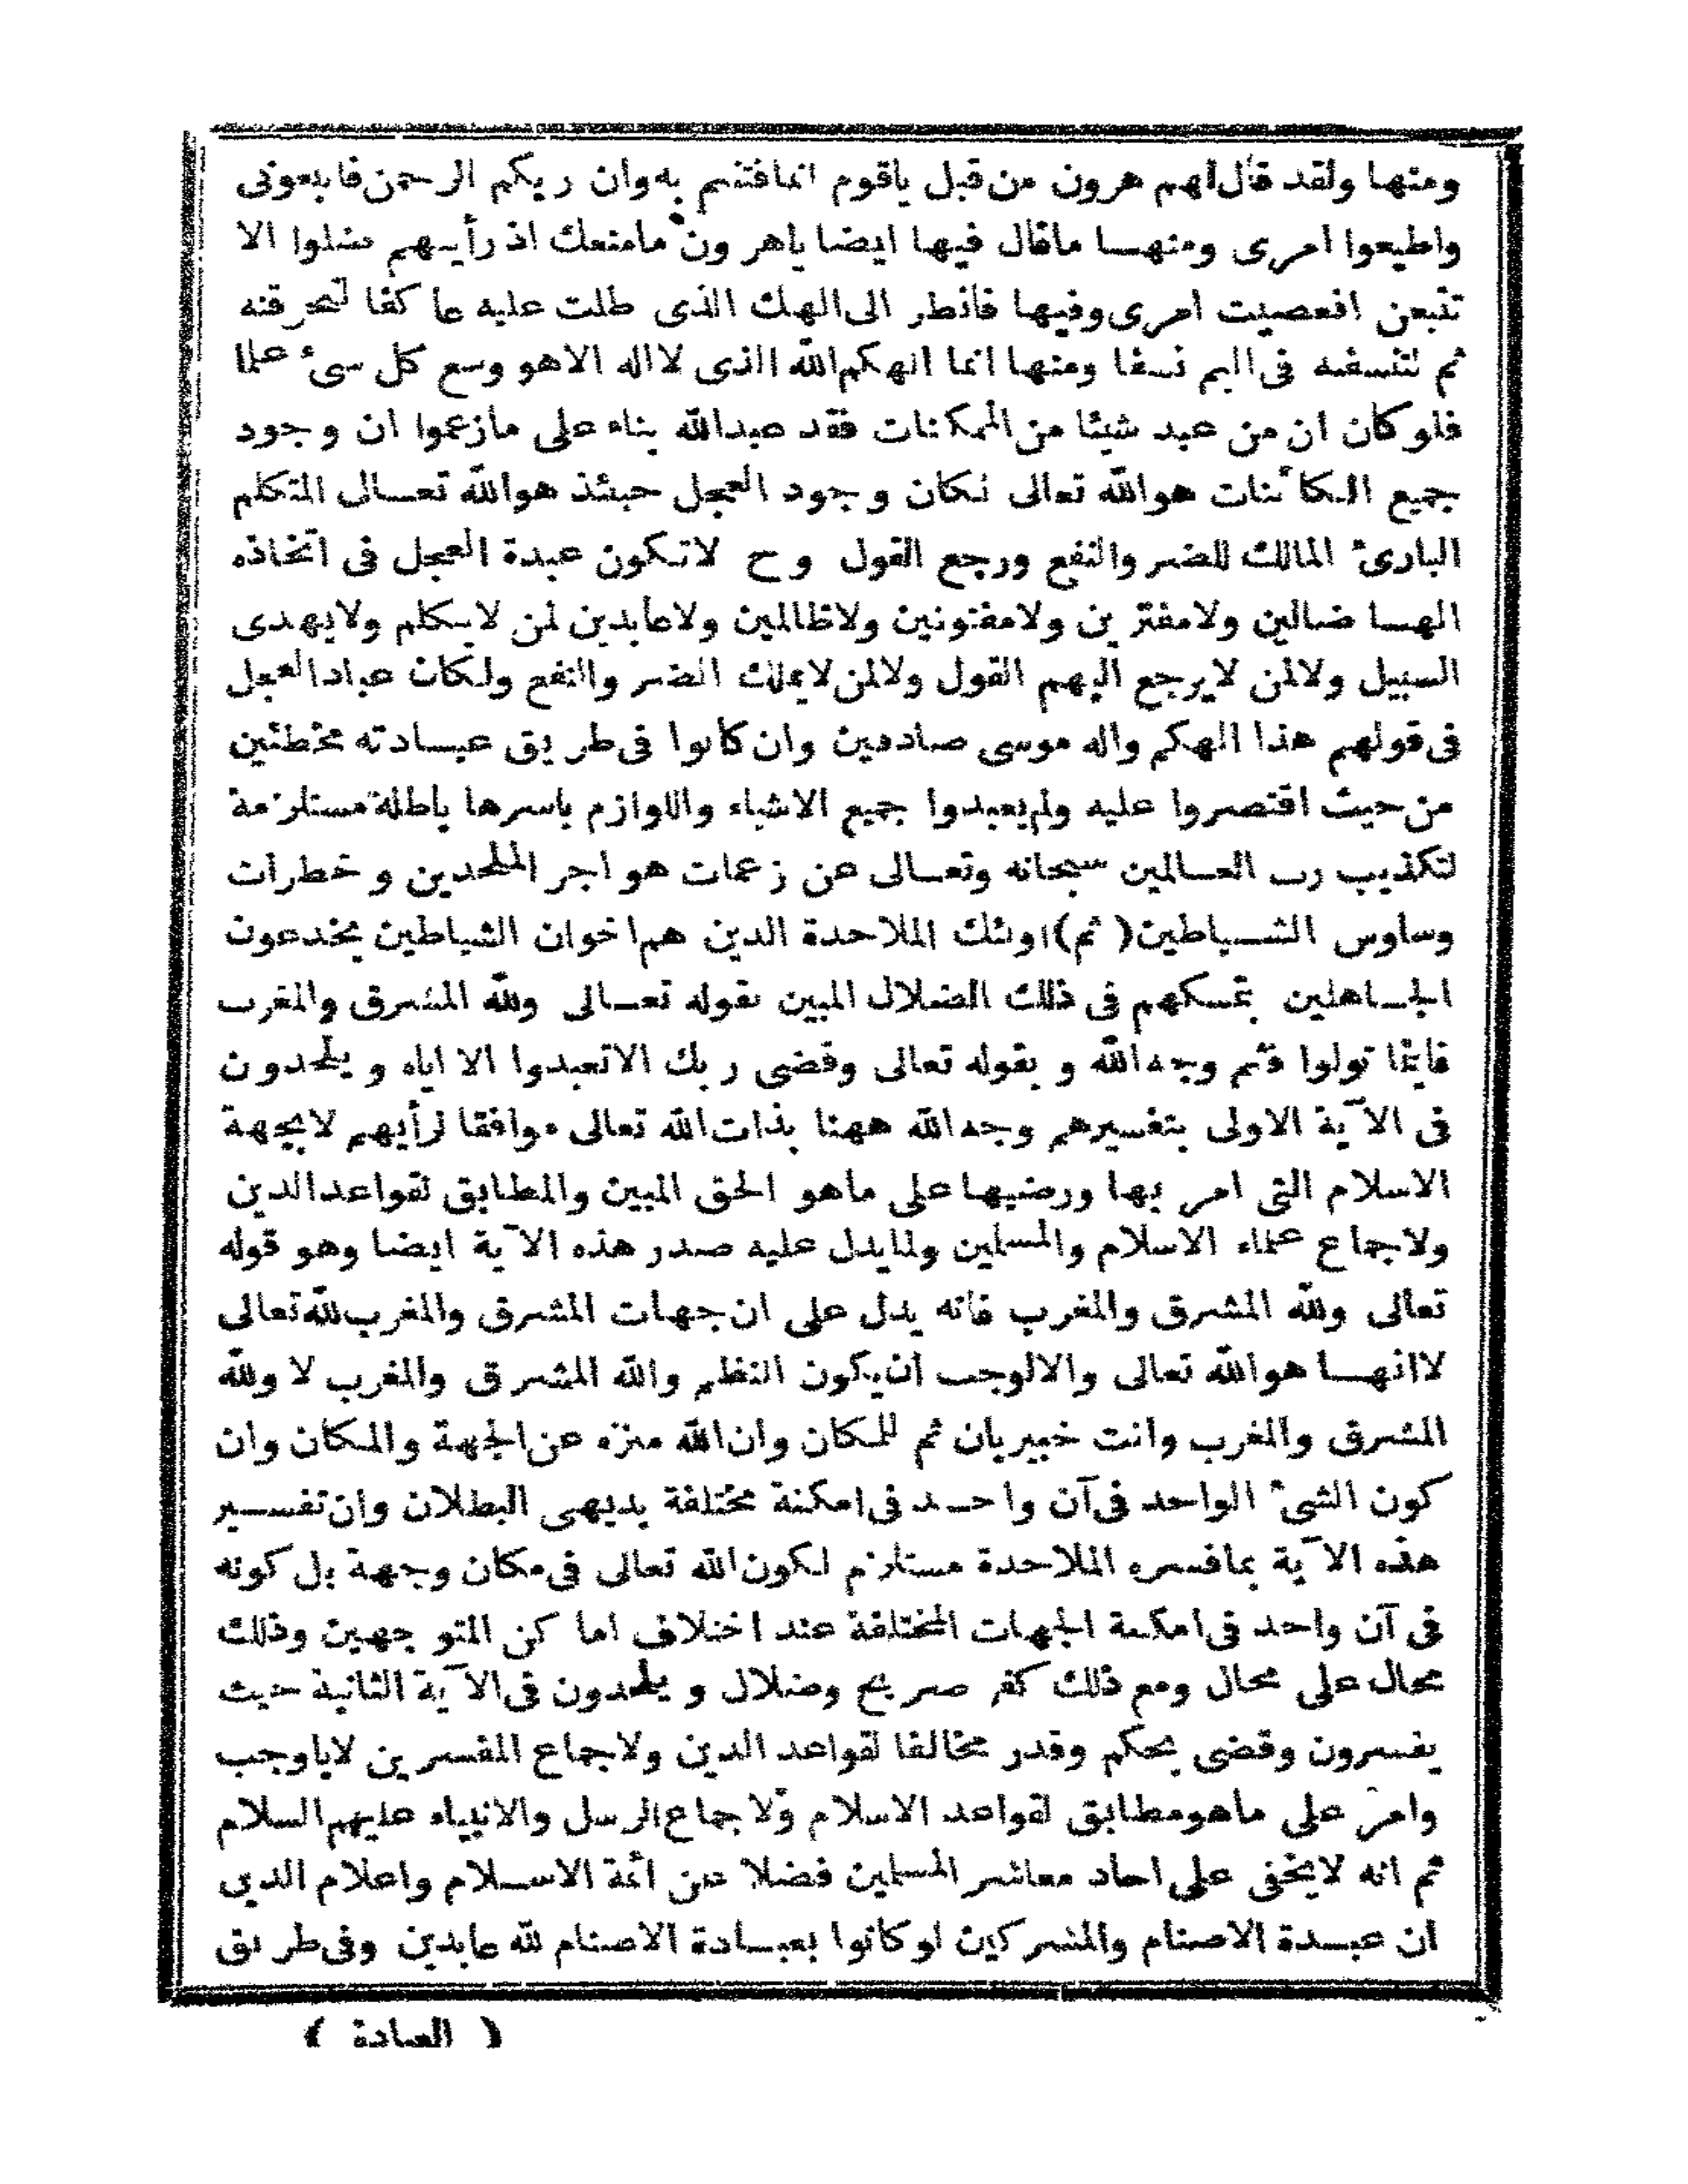 ومنها ولقد قال لهم هرون من قبل ياقوم انما فتنتم به وان ربكم الرحمن فاتبعونى
واطيعوا امرى ومنهـا ماقال فيها ايضا ياهرون مامنعك اذ رأيتهم ضلوا الا
تتبعن افعصيت امرى وفيها فانظر الى الهك الذى ظلت عليه عاكفا لنحرقنه
ثم لننسفنه فى اليم نسفا ومنها انما الهكم الله الذى لااله الاهو وسع كل شىء علما
فلوكان ان من عبد شيئا من الممكنات فقد عبدالله بناء على مازعموا ان وجود
جميع الكائنات هوالله تعالى لكان وجود العجل حينئذ هوالله تعـالى المتكلم
البارئ المالك للضر والنفع ورجع القول وح لاتكون عبدة العجل فى اتخاذه
الهـا ضالين ولامفترين ولامفتونين ولاظالمين ولاعابدين لمن لايتكلم ولايهدى
السبيل ولالمن لايرجع اليهم القول ولالمن لايملك الضر والنفع ولكان عباد العجل
فى قولهم هذا الهكم واله موسى صادقين وان كانوا فى طريق عبـادته مخطئين
من حيث اقتصروا عليه ولم يعبدوا جميع الاشياء واللوازم باسرها باطلة مستلزمة
لتكذيب رب العـالمين سبحانه وتعـالى عن زعمات هواجر الملحدين وخطرات
وساوس الشـياطين (ثم) اولئك الملاحدة الذين هم اخوان الشياطين يخدعون
الجـاهلين بتمسكهم فى ذلك الضلال المبين بقوله تعـالى ولله المشرق والمغرب
فاينما تولوا فثم وجه الله وبقوله تعالى وقضى ربك الاتعبدوا الا اياه ويلحدون
فى الآية الاولى بتفسيرهم وجه الله ههنا بذات الله تعالى موافقا لرأيهم لابجهة
الاسلام التى امر بها ورضيها على ماهو الحق المبين والمطابق لقواعد الدين
ولاجماع علماء الاسلام والمسلمين ولما يدل عليه صدر هذه الآية ايضا وهو قوله
تعالى ولله المشرق والمغرب فانه يدل على ان جهات المشرق والمغرب لله تعالى
لاانهـا هوالله تعالى والالوجب ان يكون النظم والله المشرق والمغرب لا ولله
المشرق والمغرب وانت خبير بان ثم للمكان وان الله منزه عن الجهة والمكان وان
كون الشئ الواحد فى آن واحـد فى امكنة مختلفة بديهى البطلان وان تفسـير
هذه الآية بمافسره الملاحدة مستلزم لكون الله تعالى فى مكان وجهة بل كونه
فى آن واحد فى امكنة الجهات المختلفة عند اختلاف اماكن المتوجهين وذلك
محال على محال ومع ذلك كفر صريح وضلال ويلحدون فى الآية الثانية حيث
يفسرون وقضى بحكم وقدر مخالفا لقواعد الدين ولاجماع المفسرين لاباوجب
وامر على ماهومطابق لقواعد الاسلام ولاجماع الرسل والانبياء عليهم السلام
ثم انه لايخفى على احاد معاشر المسلمين فضلا عن ائمة الاسـلام واعلام الدين
ان عبـدة الاصنام والمشركين لوكانوا بعبـادة الاصنام لله عابدين وفى طريق
( العبادة )